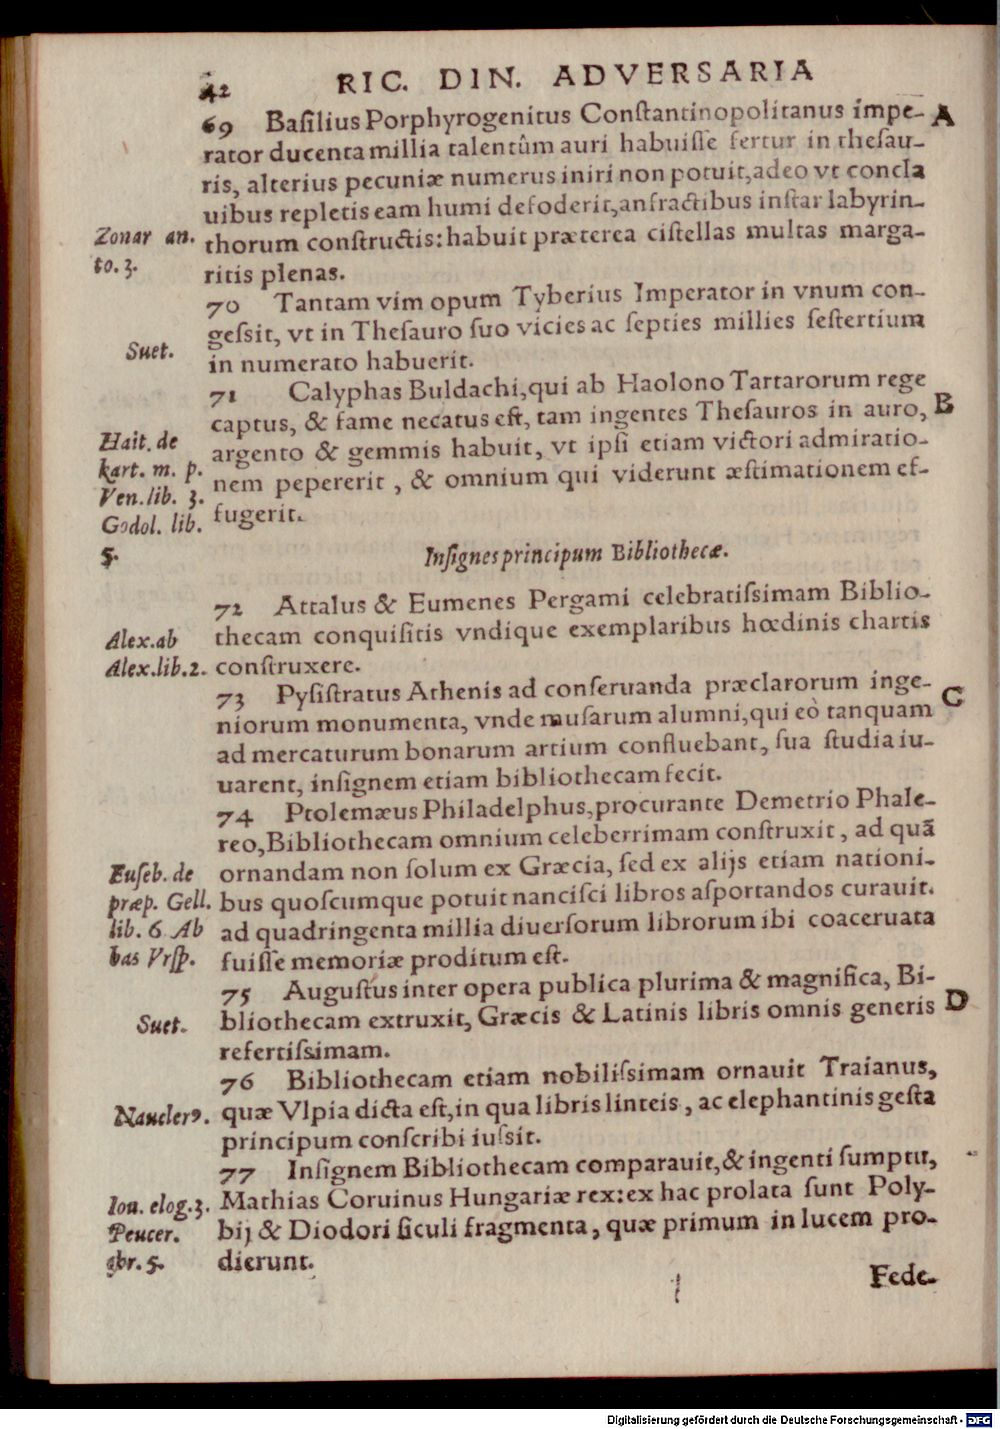 42 RIC. DIN. ADVERSARIA
69 Baſilius Porphyrogenitus Conſtantinopolitanus impe- A
rator ducenta millia talentûm auri habuiſſe fertur in theſau-
ris, alterius pecuniæ numerus iniri non potuit, adeo vt concla
uibus repletis eam humi defoderit, anfractibus inſtar labyrin-
Zonar an. thorum conſtructis: habuit præterea ciſtellas multas marga-
to. 3. ritis plenas.
70 Tantam vim opum Tyberius Imperator in vnum con-
geſsit, vt in Theſauro ſuo vicies ac ſepties millies ſeſtertium
Suet. in numerato habuerit.
71 Calyphas Buldachi, qui ab Haolono Tartarorum rege
captus, & fame necatus eſt, tam ingentes Theſauros in auro, B
Hait. de argento & gemmis habuit, vt ipſi etiam victori admiratio-
kart. m. p. nem pepererit, & omnium qui viderunt æſtimationem ef-
Ven. lib. 3. fugerit.
Godol. lib.
5. Inſignes principum Bibliothecæ.
72 Attalus & Eumenes Pergami celebratiſsimam Biblio-
Alex. ab thecam conquiſitis vndique exemplaribus hœdinis chartis
Alex. lib. 2. conſtruxere.
73 Pyſiſtratus Athenis ad conſeruanda præclarorum inge- C
niorum monumenta, vnde muſarum alumni, qui eò tanquam
ad mercaturum bonarum artium confluebant, ſua ſtudia iu-
uarent, inſignem etiam bibliothecam fecit.
74 Ptolemæus Philadelphus, procurante Demetrio Phale-
reo, Bibliothecam omnium celeberrimam conſtruxit, ad quā
Euſeb. de ornandam non ſolum ex Græcia, ſed ex alijs etiam nationi-
præp. Gell. bus quoſcumque potuit nanciſci libros aſportandos curauit.
lib. 6 Ab ad quadringenta millia diuerſorum librorum ibi coaceruata
bas Vrſp. fuiſſe memoriæ proditum eſt.
75 Auguſtus inter opera publica plurima & magnifica, Bi-
Suet. bliothecam extruxit, Græcis & Latinis libris omnis generis D
refertiſsimam.
76 Bibliothecam etiam nobiliſsimam ornauit Traianus,
Naucler⁹. quæ Vlpia dicta eſt, in qua libris linteis, ac elephantinis geſta
principum conſcribi iuſsit.
77 Inſignem Bibliothecam comparauit, & ingenti ſumptu,
Iou. elog. 3. Mathias Coruinus Hungariæ rex: ex hac prolata ſunt Poly-
Peucer. bij & Diodori ſiculi fragmenta, quæ primum in lucem pro-
chr. 5. dierunt.
Fede-
Digitalisierung gefördert durch die Deutsche Forschungsgemeinschaft - DFG